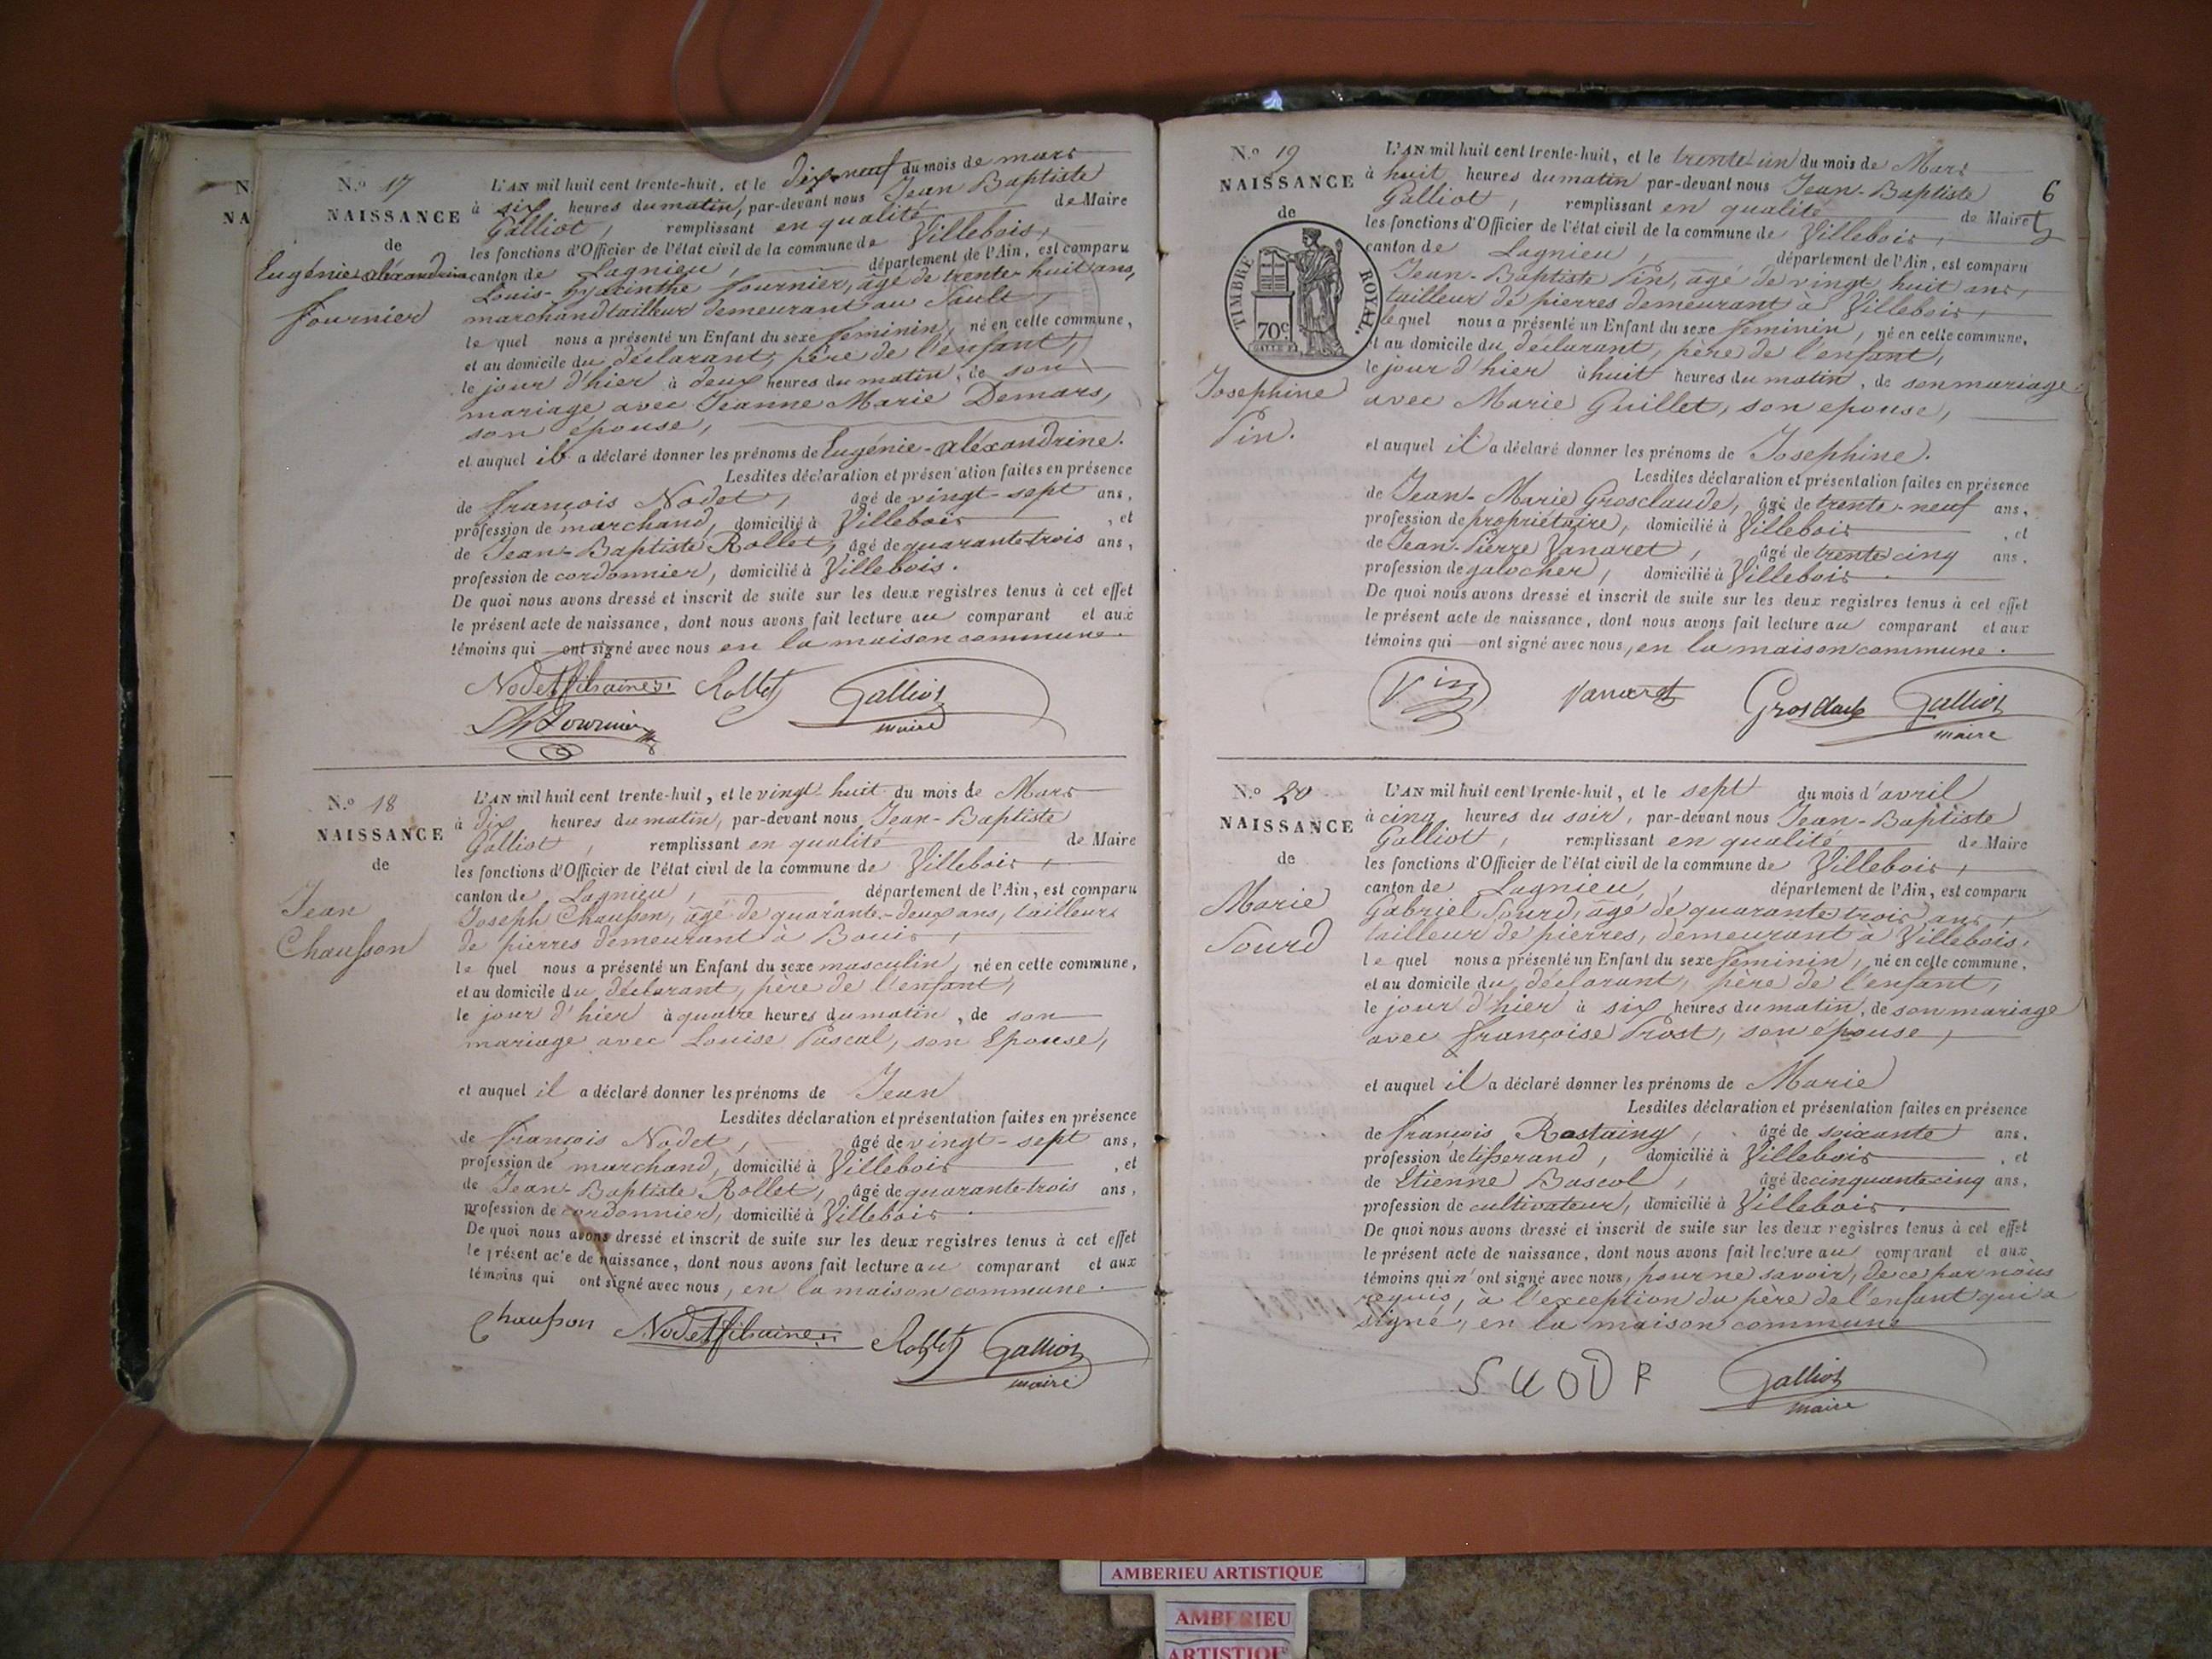 N
NA
N.º 17
NAISSANCE
de
Eugénie-aléxandrine
Fournier
L'AN mil huit cent trente-huit, et le dix-neuf du mois de mars
à six heures du matin, par-devant nous Jean Baptiste
Galliot, remplissant en qualité de Maire
les fonctions d'Officier de l'état civil de la commune de Villebois,
canton de Lagnieu, département de l'Ain, est comparu
Louis-hyacinthe fournier, âgé de trente-huit ans,
marchand tailleur demeurant au Sault,
le quel nous a présenté un Enfant du sexe féminin, né en cette commune,
et au domicile du déclarant, père de l'enfant,
le jour d'hier à deux heures du matin, de son
mariage avec Jeanne Marie Demars,
son épouse,
et auquel il a déclaré donner les prénoms de Eugénie-aléxandrine.
Lesdites déclaration et présentation faites en présence
de françois Nodet, âgé de vingt-sept ans,
profession de marchand, domicilié à Villebois, et
de Jean-Baptiste Rollet, âgé de quarante-trois ans,
profession de cordonnier, domicilié à Villebois.
De quoi nous avons dressé et inscrit de suite sur les deux registres tenus à cet effet
le présent acte de naissance, dont nous avons fait lecture au comparant et aux
témoins qui ont signé avec nous en la maison commune.
Nodet fils ainé Rollet Galliot
LH Fournier maire
N.º 18
NAISSANCE
de
Jean
Chausson
L'AN mil huit cent trente-huit, et le vingt-huit du mois de Mars
à dix heures du matin, par-devant nous Jean-Baptiste
Galliot, remplissant en qualité de Maire
les fonctions d'Officier de l'état civil de la commune de Villebois,
canton de Lagnieu, département de l'Ain, est comparu
Joseph Chausson, âgé de quarante-deux ans, tailleur
de pierres demeurant à Bouis,
le quel nous a présenté un Enfant du sexe masculin, né en cette commune,
et au domicile du déclarant, père de l'enfant,
le jour d'hier à quatre heures du matin, de son
mariage avec Louise Pascal, son Epouse,
et auquel il a déclaré donner les prénoms de Jean
Lesdites déclaration et présentation faites en présence
de françois Nodet, âgé de vingt-sept ans,
profession de marchand, domicilié à Villebois, et
de Jean-Baptiste Rollet, âgé de quarante-trois ans,
profession de cordonnier, domicilié à Villebois.
De quoi nous avons dressé et inscrit de suite sur les deux registres tenus à cet effet
le présent acte de naissance, dont nous avons fait lecture au comparant et aux
témoins qui ont signé avec nous, en la maison commune.
Chausson Nodet fils ainé Rollet Galliot
maire
N.º 19
NAISSANCE
de
TIMBRE ROYAL.
70c.
Josephine
Pin.
6
L'AN mil huit cent trente-huit, et le trente-un du mois de Mars
à huit heures du matin par-devant nous Jean-Baptiste
Galliot, remplissant en qualité de Maire
les fonctions d'Officier de l'état civil de la commune de Villebois,
canton de Lagnieu, département de l'Ain, est comparu
Jean-Baptiste Pin, âgé de vingt huit ans,
tailleur de pierres demeurant à Villebois,
lequel nous a présenté un Enfant du sexe féminin, né en cette commune,
et au domicile du déclarant, père de l'enfant,
le jour d'hier à huit heures du matin, de son mariage
avec Marie Guillet, son épouse,
et auquel il a déclaré donner les prénoms de Josephine.
Lesdites déclaration et présentation faites en présence
de Jean-Marie Grosclaude, âgé de trente-neuf ans,
profession de propriétaire, domicilié à Villebois, et
de Jean-Pierre Vanaret, âgé de trente cinq ans.
profession de galocher, domicilié à Villebois.
De quoi nous avons dressé et inscrit de suite sur les deux registres tenus à cet effet
le présent acte de naissance, dont nous avons fait lecture au comparant et aux
témoins qui ont signé avec nous, en la maison commune.
Pin Vanaret Grosclaude Galliot
maire
N.º 20
NAISSANCE
de
Marie
Sourd
L'AN mil huit cent trente-huit, et le sept du mois d'avril
à cinq heures du soir, par-devant nous Jean-Baptiste
Galliot, remplissant en qualité de Maire
les fonctions d'Officier de l'état civil de la commune de Villebois,
canton de Lagnieu, département de l'Ain, est comparu
Gabriel Sourd, âgé de quarante-trois ans,
tailleur de pierres, demeurant à Villebois,
le quel nous a présenté un Enfant du sexe féminin, né en cette commune,
et au domicile du déclarant, père de l'enfant,
le jour d'hier à six heures du matin, de son mariage
avec françoise Prost, son épouse,
et auquel il a déclaré donner les prénoms de Marie
Lesdites déclaration et présentation faites en présence
de françois Rostaing, âgé de soixante ans,
profession de tisserand, domicilié à Villebois, et
de Etienne Bascol, âgé de cinquante-cinq ans,
profession de cultivateur, domicilié à Villebois.
De quoi nous avons dressé et inscrit de suite sur les deux registres tenus à cet effet
le présent acte de naissance, dont nous avons fait lecture au comparant et aux
témoins qui n'ont signé avec nous, pour ne savoir, de ce par nous
requis, à l'exception du père de l'enfant qui a
signé, en la maison commune
SUODR Galliot
maire
AMBERIEU ARTISTIQUE
AMBERIEU
ARTISTIQUE